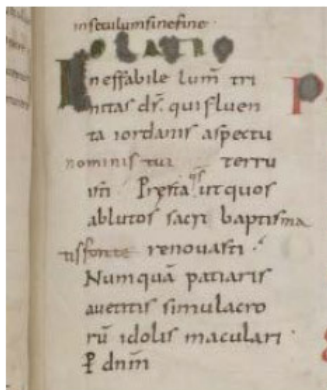 inseculumsinefine
ORATIO
Ineffabile lum̄ tri
nitas ds̄. qui fluen
ta iordanis aspectu
nominis tui terru
isti Presta qs̄ ut quos
ablutos sacri baptisma
tis fonte renovasti.
Numquā patiaris
avetitis simulacro
rū idolis maculari.
P dnm̄
P